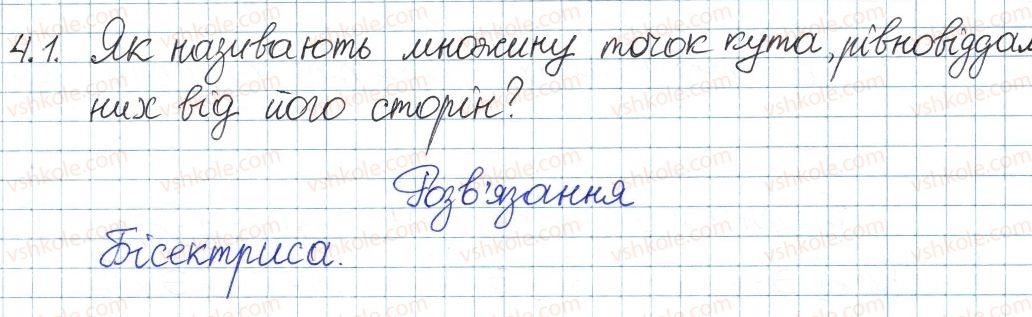 4.1. Як називають множину точок кута, рівновіддале
них від його сторін?
Розв'язання
Бісектриса.